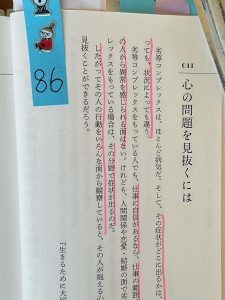 86
011
心の問題を見抜くには
劣等コンプレックスは、ほとんど病気だ。そして、その症状がどこに出るかは、
っても、状況によっても違う。
劣等コンプレックスをもっている人でも、仕事に自信があるなら、仕事の範囲
の人から異常を感じられる面はない。けれども、人間関係や恋愛・結婚の面で劣
レックスをもっている場合は、その分野で症状が出るのだ。
したがってその人の行動をいろんな面から観察していると、その人が抱える心
見抜くことができるだろう。
「生きるために大